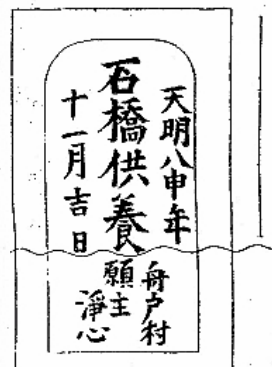 天明八申年
石橋供養
十一月吉日
舟戸村
願主
淨心